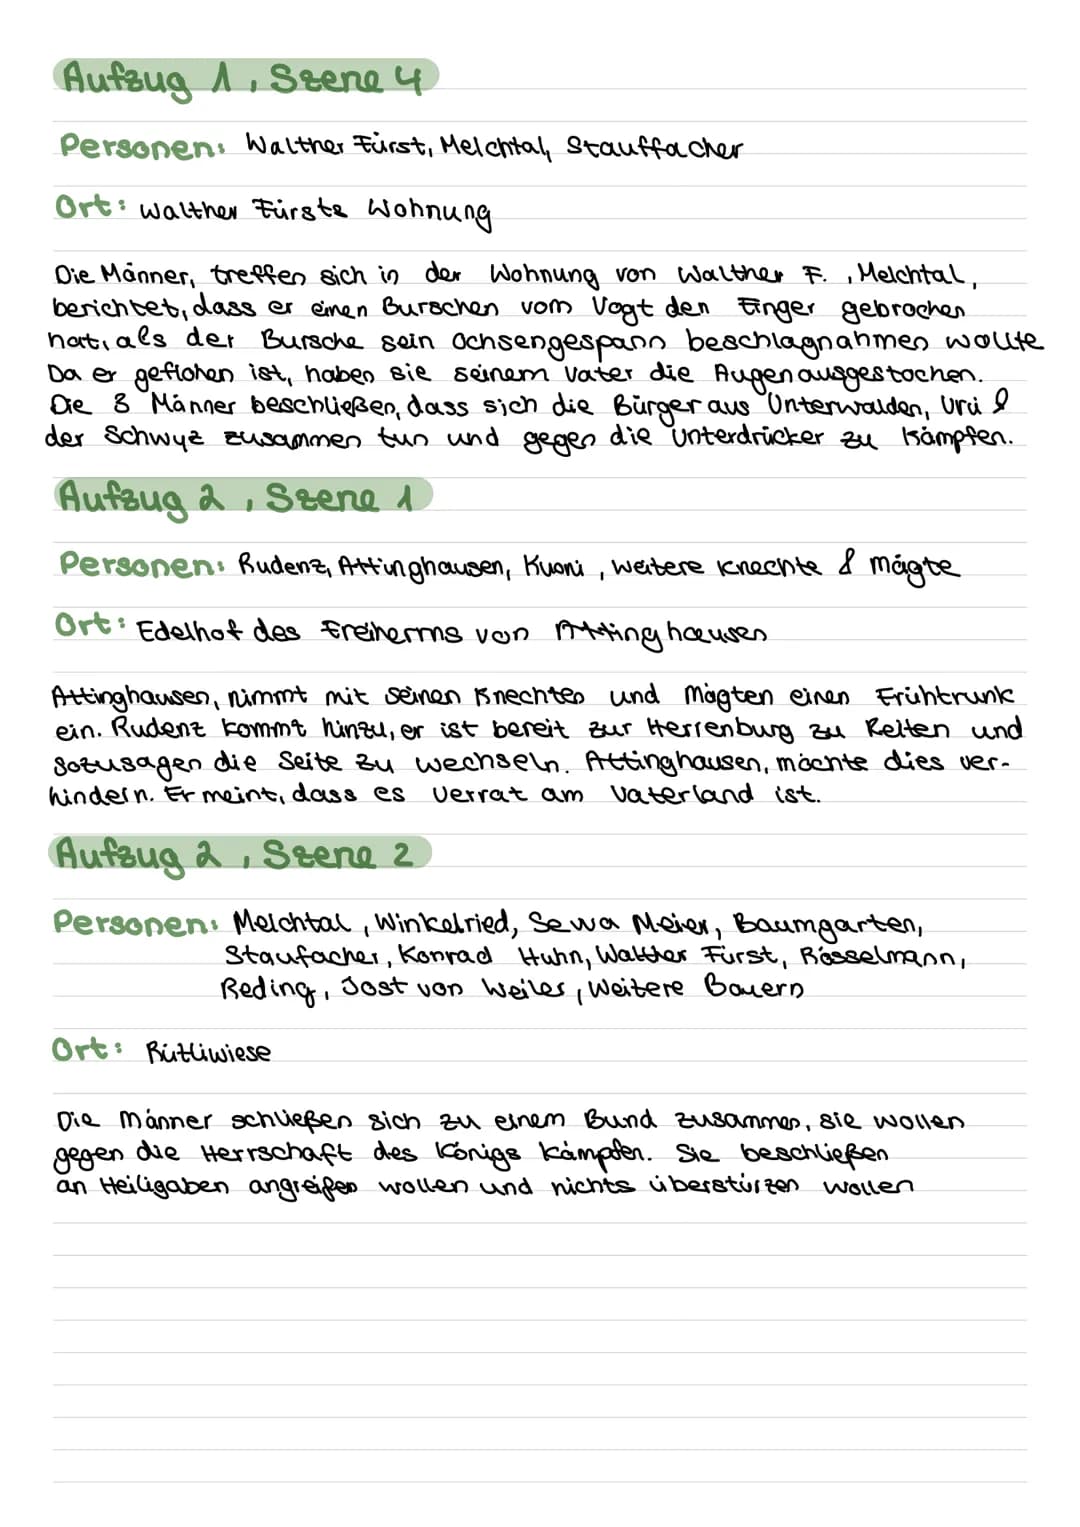 Aufzug 1, Szene 4
Personen: Walther Fürst, Melchtal, Stauffacher
Ort: Walther Fürsts Wohnung
Die Männer, treffen sich in der Wohnung von Walther F. , Melchtal,
berichtet, dass er einen Burschen vom Vogt den Finger gebrochen
hat, als der Bursche sein Ochsengespann beschlagnahmen wollte
Da er geflohen ist, haben sie seinem Vater die Augen ausgestochen.
Die 3 Männer beschließen, dass sich die Bürger aus Unterwalden, Uri &
der Schwyz zusammen tun und gegen die Unterdrücker zu kämpfen.
Aufzug 2, Szene 1
Personen: Rudenz, Attinghausen, Kuoni, weitere Knechte & Mägte
Ort: Edelhof des Freiherrns von Attinghausen
Attinghausen, nimmt mit seinen Knechten und Mägten einen Frühtrunk
ein. Rudenz kommt hinzu, er ist bereit zur Herrenburg zu Reiten und
sozusagen die Seite zu wechseln. Attinghausen, möchte dies ver-
hindern. Er meint, dass es Verrat am Vaterland ist.
Aufzug 2, Szene 2
Personen: Melchtal, Winkelried, Sewa Meier, Baumgarten,
Staufacher, Konrad Huhn, Walther Fürst, Rösselmann,
Reding, Jost von Weiler, Weitere Bauern
Ort: Rütliwiese
Die Männer schließen sich zu einem Bund zusammen, sie wollen
gegen die Herrschaft des Königs kämpfen. Sie beschließen
an Heiligaben angreifen wollen und nichts überstürzen wollen